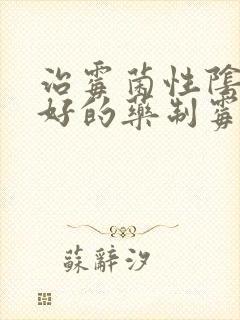 治霉菌性陰
好的藥制霉
蘇辭汐